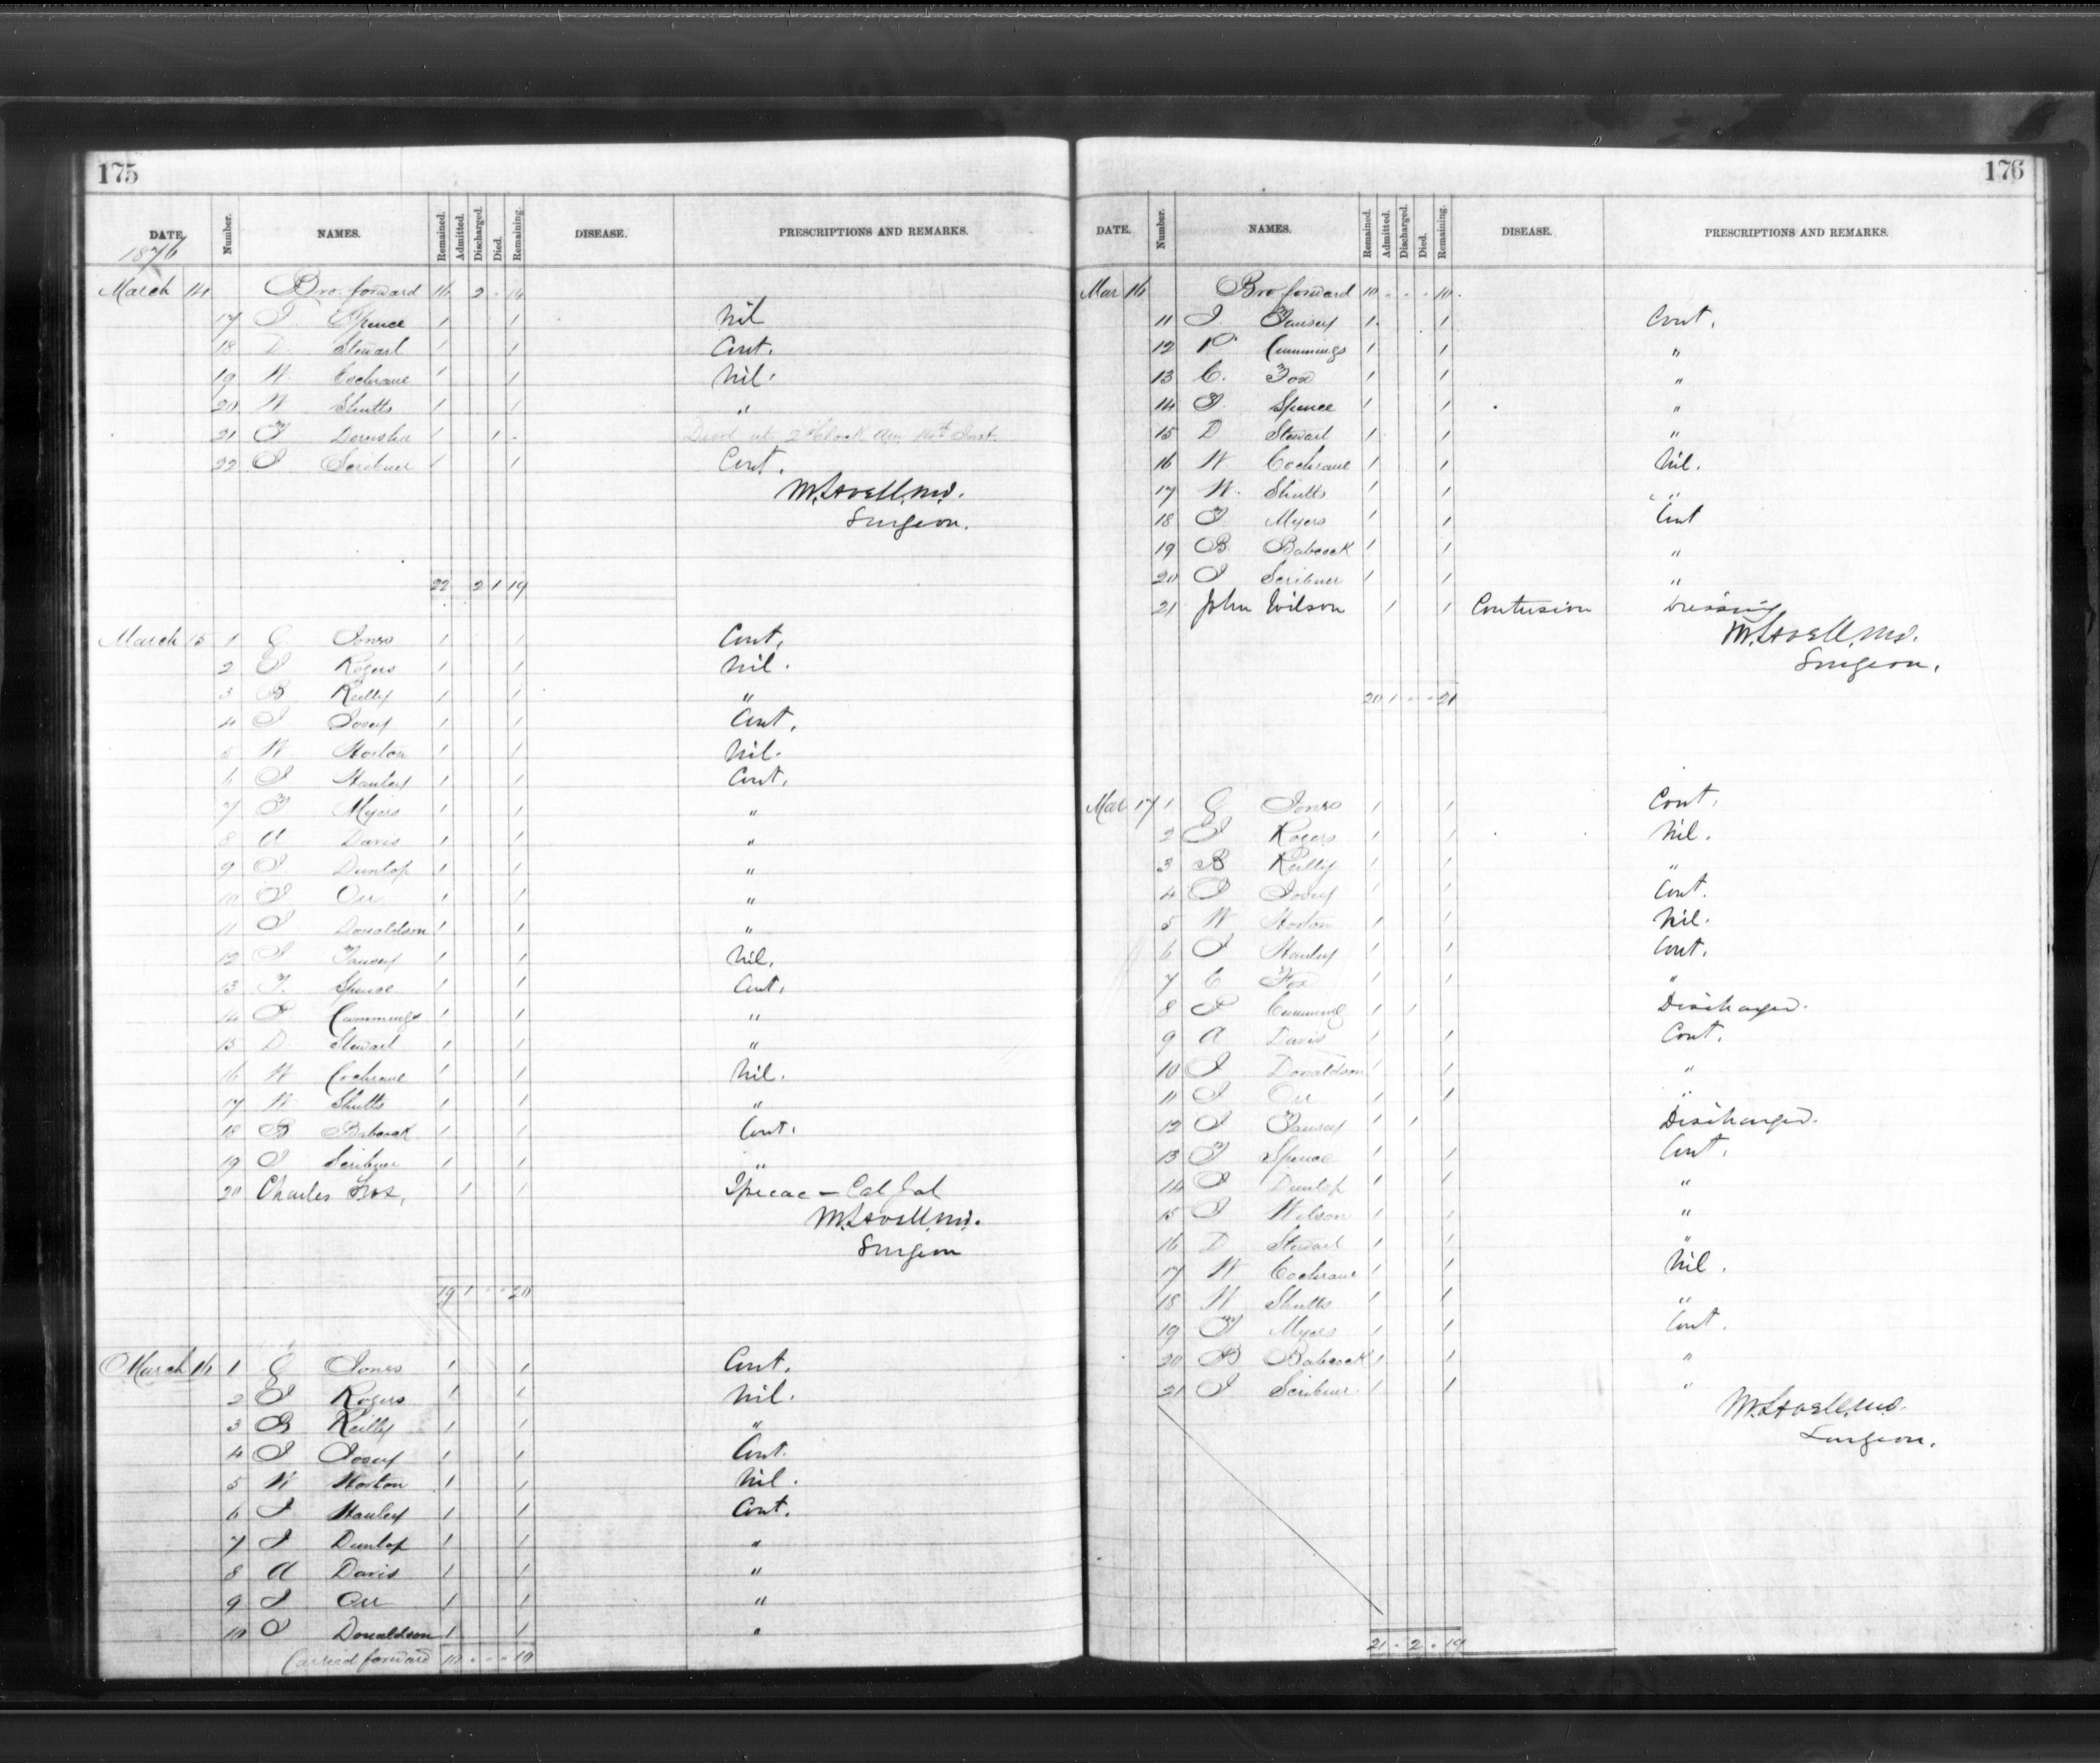 175
DATE. Number. NAMES. Remained. Admitted. Discharged. Died. Remaining. DISEASE. PRESCRIPTIONS AND REMARKS.
1876
March 14 Bro. forward 16 2 - 14
17 Spence 1 1 Nil
18 D. Stewart 1 1 Cont.
19 W. Cochrane 1 1 Nil.
20 W Shutts 1 1 "
21 1 1 - Died at 2 o'Clock am 14th Inst.
22 J Scribner 1 1 Cont.
M. Lavell, M.D.
Surgeon.
22 2 1 19
March 15 1 G Jones 1 1 Cont.
2 J Rogers 1 1 Nil.
3 B Reilly 1 1 "
4 J 1 1 Cont.
5 W Horton 1 1 Nil.
6 J Hanley 1 1 Cont.
7 F Myers 1 1 "
8 A Davis 1 1 "
9 J Dunlop 1 1 "
10 J Orr 1 1 "
11 J Donaldson 1 1 "
12 J 1 1 Nil.
13 F. Spence 1 1 Cont.
14 P Cummings 1 1 "
15 D Stewart 1 1 "
16 W Cochrane 1 1 Nil.
17 W Shutts 1 1 "
18 B Babcock 1 1 Cont.
19 J Scribner 1 1 "
20 Charles Fox, 1 1 Ipecac - Cal
M. Lavell, M.D.
Surgeon
19 1 - - 20
March 16 1 G Jones 1 1 Cont.
2 J Rogers 1 1 Nil.
3 B Reilly 1 1 "
4 J 1 1 Cont.
5 W Horton 1 1 Nil.
6 J Hanley 1 1 Cont.
7 J Dunlop 1 1 "
8 A Davis 1 1 "
9 J Orr 1 1 "
10 J Donaldson 1 1 "
Carried forward 10 - - - 10
176
DATE. Number. NAMES. Remained. Admitted. Discharged. Died. Remaining. DISEASE. PRESCRIPTIONS AND REMARKS.
Mar 16 Bro forward 10 - - - 10
11 J. 1 1 Cont.
12 P Cummings 1 1 "
13 C. Fox 1 1 "
14 F. Spence 1 1 "
15 D Stewart 1 1 "
16 W Cochrane 1 1 Nil.
17 W. Shutts 1 1 "
18 F Myers 1 1 Cont
19 B. Babcock 1 1 "
20 J Scribner 1 1 "
21 John Wilson 1 1 Contusion Dressing
M. Lavell, M.D.
Surgeon.
20 1 - - 21
Mar 17 1 G Jones 1 1 Cont.
2 J Rogers 1 1 Nil.
3 B Reilly 1 1 "
4 J 1 1 Cont.
5 W Horton 1 1 Nil.
6 J Hanley 1 1 Cont.
7 C Fox 1 1 "
8 P Cummings 1 1 Discharged.
9 A Davis 1 1 Cont.
10 J Donaldson 1 1 "
11 J Orr 1 1 "
12 J 1 1 Discharged.
13 F Spence 1 1 Cont.
14 J Dunlop 1 1 "
15 J Wilson 1 1 "
16 D Stewart 1 1 "
17 W Cochrane 1 1 Nil.
18 W Shutts 1 1 "
19 F Myers 1 1 Cont.
20 B Babcock 1 1 "
21 J Scribner 1 1 "
M. Lavell, M.D.
Surgeon.
21 - 2 - 19